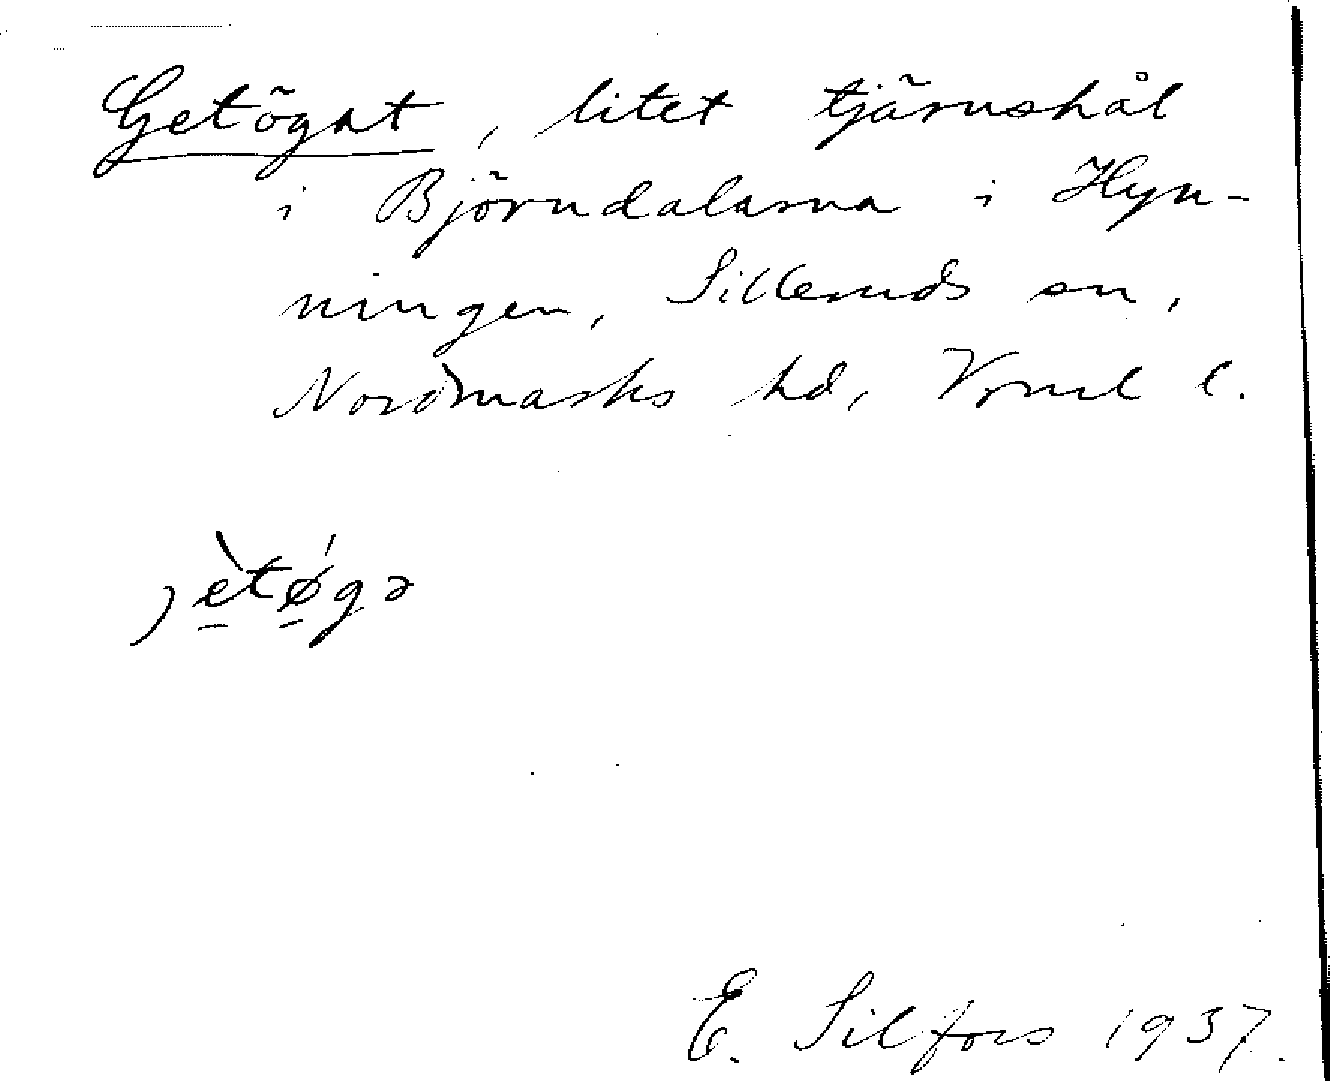 Getögat, litet tjärnshål
i Björndalarna i Hyn-
ningen, Silleruds sn,
Nordmarks hd, Vrml l.
jètøgə
E. Silfors 1937.